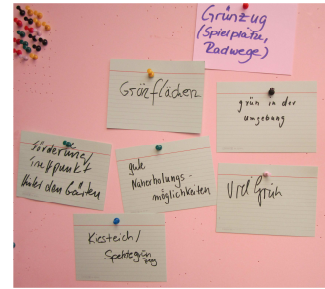 Grünzug
(Spielplätze,
Radwege)
Grünflächen
grün in der
Umgebung
Förderung/
Treffpunkt
den Gärten
gute
Naherholungs-
möglichkeiten
Viel Grün
Kiesteich/